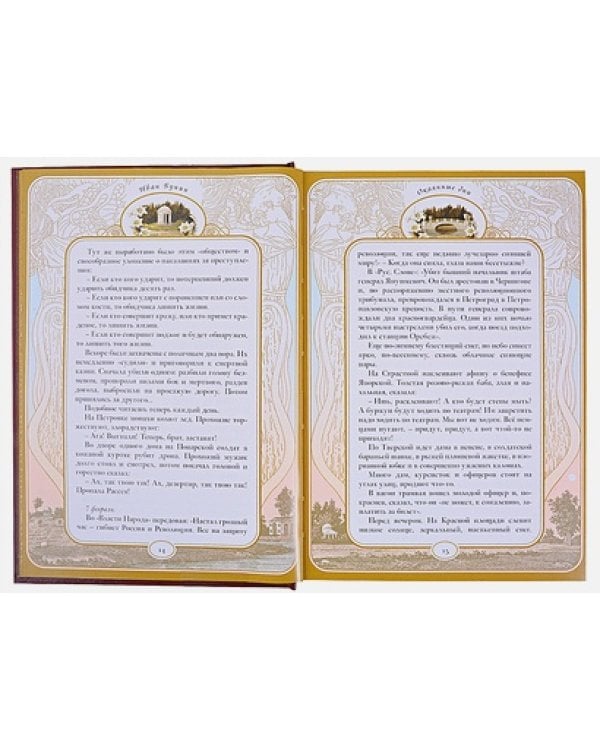 Иван Бунин
Тут же выработано было этим «обществом» и
своеобразное уложение о наказаниях за преступле-
ния:
– Если кто кого ударит, то потерпевший должен
ударить обидчика десять раз.
– Если кто кого ударит с поранением или со сло-
мом кости, то обидчика лишить жизни.
– Если кто совершит кражу, или кто примет кра-
деное, то лишить жизни.
– Если кто совершит поджог и будет обнаружен,
то лишить того жизни.
Вскоре были захвачены с поличным два вора. Их
немедленно «судили» и приговорили к смертной
казни. Сначала убили одного: разбили голову без-
меном, пропороли вилами бок и мертвого, раздев
догола, выбросили на проезжую дорогу. Потом
принялись за другого...
Подобное читаешь теперь каждый день.
На Петровке монахи колют лед. Прохожие тор-
жествуют, злорадствуют:
– Ага! Выгнали! Теперь, брат, заставят!
Во дворе одного дома на Поварской солдат в
кожаной куртке рубит дрова. Прохожий мужик
долго стоял и смотрел, потом покачал головой и
горестно сказал:
– Ах, так твою так! Ах, дезертир, так твою так!
Пропала Рассея!
7 февраля.
Во «Власти Народа» передовая: «Настал грозный
час – гибнет Россия и Революция. Все на защиту
14
Окаянные дни
революции, так еще недавно лучезарно сиявшей
миру!» – Когда она сияла, глаза ваши бесстыжие?
В «Рус. Слове»: «Убит бывший начальник штаба
генерал Янушкевич. Он был арестован в Чернигове
и, по распоряжению местного революционного
трибунала, препровождался в Петроград в Петро-
павловскую крепость. В пути генерала сопровож-
дали два красногвардейца. Один из них ночью
четырьмя выстрелами убил его, когда поезд подхо-
дил к станции Оредеж».
Еще по-зимнему блестящий снег, но небо синеет
ярко, по-весеннему, сквозь облачные сияющие
пары.
На Страстной наклеивают афишу о бенефисе
Яворской. Толстая розово-рыжая баба, злая и на-
хальная, сказала:
– Ишь, расклеивают! А кто будет стены мыть?
А буржуи будут ходить по театрам! Им запретить
надо ходить по театрам. Мы вот не ходим. Всё не-
мцами пугают, – придут, придут, а вот чтой-то не
приходят!
По Тверской идет дама в пенсне, в солдатской
бараньей шапке, в рыжей плюшевой жакетке, в из-
орванной юбке и в совершенно ужасных калошах.
Много дам, курсисток и офицеров стоят на
углах улиц, продают что-то.
В вагон трамвая вошел молодой офицер и, по-
краснев, сказал, что он «не может, к сожалению,
заплатить за билет».
Перед вечером. На Красной площади слепит
низкое солнце, зеркальный, наезженный снег.
15